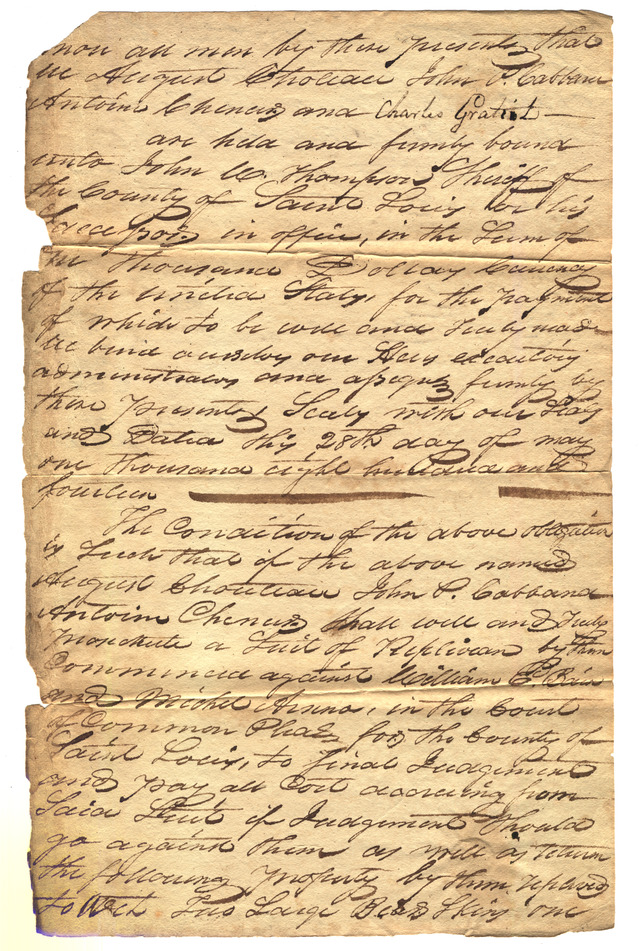 Know all men by these presents that
We August Choteau John P. Cabbana
Antoine Cheneis and Charles Gratiot
are held and firmly bound
unto John W. Thompson Sheriff of
the County of Saint Louis or his
Successors in office, in the Sum of
one thousand Dollars Currency
of the united States, for the payment
of which to be well and Truly made
We bind ourselves our Heirs executors
administrators and assigns firmly by
these presents, Seals with our Seals
and Dated this 28th day of may
one thousand eight hundred and
fourteen
The Condition of the above obligation
is Such that if the above named
August Chouteau John P. Cabbana
Antoine Cheneis Shall well and Truly
prosecute a Suit of Replivean by them
Commenced against William C.
and Michel in the Court
of Common Pleas for the County of
Saint Louis, to final Judgement
and pay all Cost accruing from
Said Suit if Judgement Should
go against them as well as return
the following property by them replivied
to Wit Two Large Bear Skins one